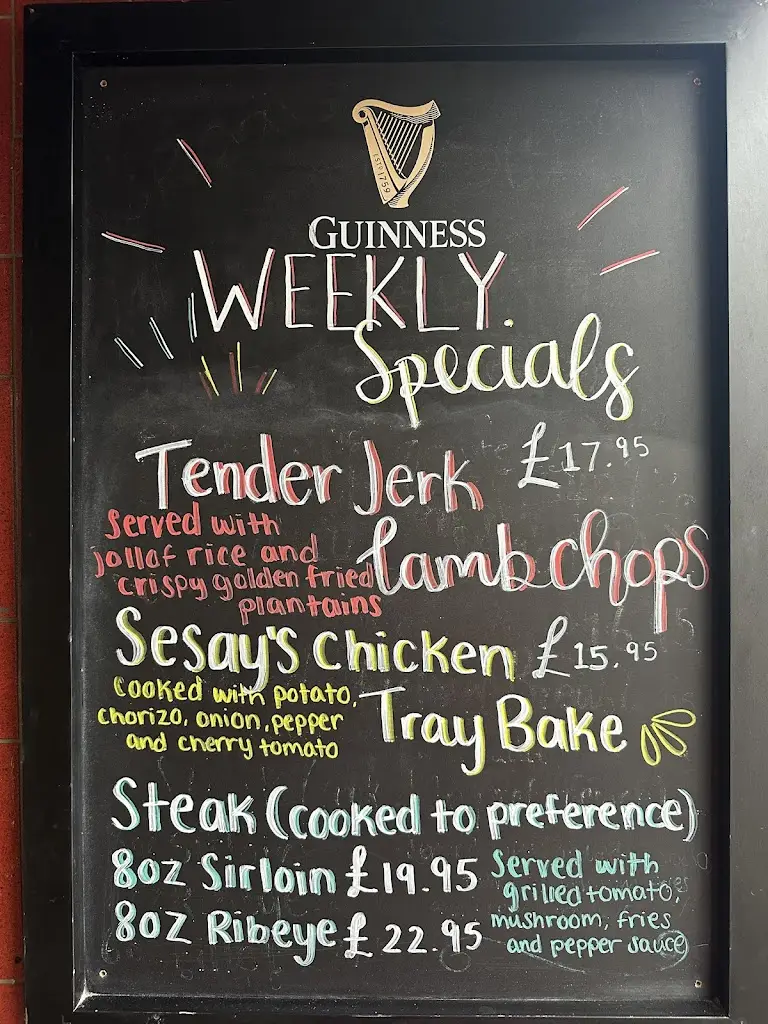 ESTD 1759
GUINNESS
WEEKLY
Specials
Tender Jerk £17.95
lamb chops
Served with
jollof rice and
crispy golden fried
plantains
Sesay's chicken £15.95
Tray Bake
Cooked with potato,
chorizo, onion, pepper
and cherry tomato
Steak (cooked to preference)
8oz Sirloin £19.95
8oz Ribeye £22.95
Served with
grilled tomato,
mushroom, fries
and pepper sauce